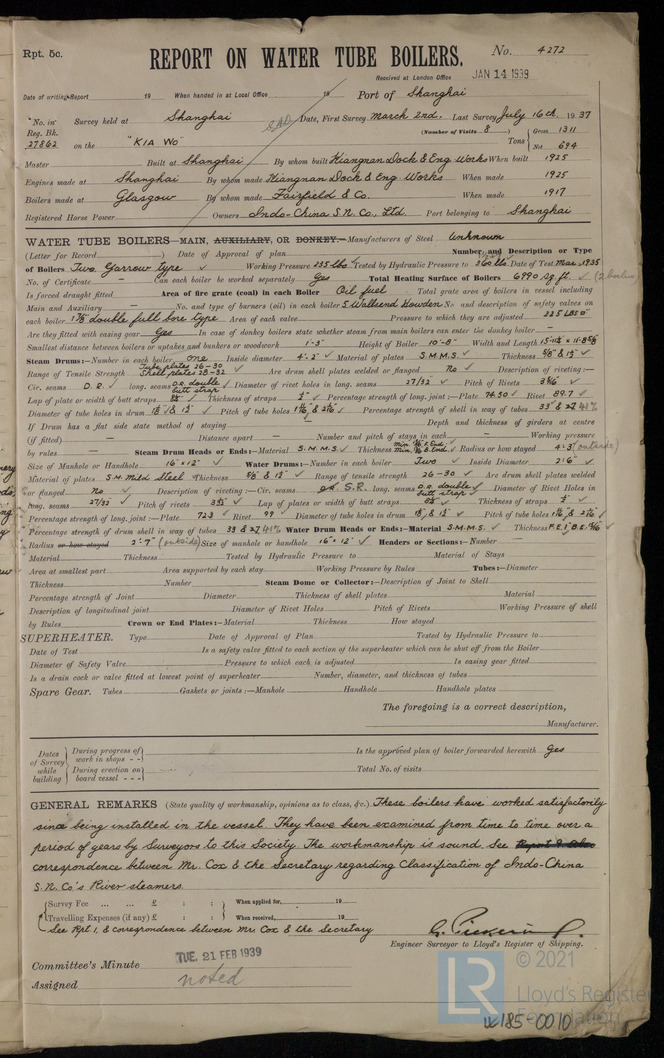 Rpt. 5c.
REPORT ON WATER TUBE BOILERS.
No. 4272
Received at London Office JAN 14 1939
Date of writing Report 19 When handed in at Local Office 19 Port of Shanghai
No. in Survey held at Shanghai Date, First Survey March 2nd. Last Survey July 16th. 1937
Reg. Bk. (Number of Visits 8 ) Gross 1311
27862 on the "KIA WO" Tons Net 694
Master Built at Shanghai By whom built Kiangnan Dock & Eng Works When built 1925
Engines made at Shanghai By whom made Kiangnan Dock & Eng. Works When made 1925
Boilers made at Glasgow By whom made Fairfield & Co. When made 1917
Registered Horse Power Owners Indo-China S.N. Co., Ltd. Port belonging to Shanghai
WATER TUBE BOILERS—MAIN, AUXILIARY, OR DONKEY.—Manufacturers of Steel Unknown
(Letter for Record ) Date of Approval of plan Number and Description or Type
of Boilers Two Yarrow type ✓ Working Pressure 225 lbs Tested by Hydraulic Pressure to 260 lbs Date of Test Mar. 1935
No. of Certificate — Can each boiler be worked separately Yes Total Heating Surface of Boilers 6990 sq. ft. ✓
Is forced draught fitted Area of fire grate (coal) in each Boiler Oil fuel Total grate area of boilers in vessel including
Main and Auxiliary — No. and type of burners (oil) in each boiler 5 Wallsend Howden No. and description of safety valves on
each boiler double full bore type Area of each valve Pressure to which they are adjusted 225 LBS
Are they fitted with easing gear Yes In case of donkey boilers state whether steam from main boilers can enter the donkey boiler —
Smallest distance between boilers or uptakes and bunkers or woodwork 1'-3" Height of Boiler 10'-8" Width and Length
Steam Drums:—Number in each boiler One Inside diameter 4'-2" ✓ Material of plates S.M.M.S. ✓ Thickness
Tube plates 26-30
Range of Tensile Strength Shell plates 28-32 Are drum shell plates welded or flanged No ✓ Description of riveting:—
Cir. seams D.R. ✓ long. seams D.R. double butt strap Diameter of rivet holes in long. seams 27/32 ✓ Pitch of Rivets
Lap of plate or width of butt straps Thickness of straps Percentage strength of long. joint:—Plate 74.50 ✓ Rivet 89.7 ✓
Diameter of tube holes in drum Pitch of tube holes Percentage strength of shell in way of tubes
If Drum has a flat side state method of staying — Depth and thickness of girders at centre
(if fitted) — Distance apart — Number and pitch of stays in each — Working pressure
by rules — Steam Drum Heads or Ends:—Material S.M.M.S. ✓ Thickness Radius or how stayed 4'-3" (outside)
Size of Manhole or Handhole 16" × 12" ✓ Water Drums:—Number in each boiler Two ✓ Inside Diameter 2'-6" ✓
Material of plates S.M. Mild Steel Thickness Range of tensile strength 26-30 ✓ Are drum shell plates welded
or flanged No ✓ Description of riveting:—Cir. seams S.R. long. seams D.R. double butt strap Diameter of Rivet Holes in
long. seams 27/32 ✓ Pitch of rivets Lap of plates or width of butt straps Thickness of straps
Percentage strength of long. joint:—Plate Rivet 99 ✓ Diameter of tube holes in drum Pitch of tube holes
Percentage strength of drum shell in way of tubes Water Drum Heads or Ends:—Material S.M.M.S. ✓ Thickness
Radius or how stayed 2'-7" (outside) Size of manhole or handhole 16" × 12" ✓ Headers or Sections:—Number —
Material Thickness Tested by Hydraulic Pressure to Material of Stays
Area at smallest part Area supported by each stay Working Pressure by Rules Tubes:—Diameter
Thickness Number Steam Dome or Collector:—Description of Joint to Shell
Percentage strength of Joint Diameter Thickness of shell plates Material
Description of longitudinal joint Diameter of Rivet Holes Pitch of Rivets Working Pressure of shell
by Rules Crown or End Plates:—Material Thickness How stayed
SUPERHEATER. Type Date of Approval of Plan Tested by Hydraulic Pressure to
Date of Test Is a safety valve fitted to each section of the superheater which can be shut off from the Boiler
Diameter of Safety Valve Pressure to which each is adjusted Is easing gear fitted
Is a drain cock or valve fitted at lowest point of superheater Number, diameter, and thickness of tubes
Spare Gear. Tubes Gaskets or joints:—Manhole Handhole Handhole plates
The foregoing is a correct description,
Manufacturer.
Dates of Survey while building During progress of work in shops - - Is the approved plan of boiler forwarded herewith Yes
During erection on board vessel - - - Total No. of visits
GENERAL REMARKS (State quality of workmanship, opinions as to class, &c.) These boilers have worked satisfactorily
since being installed in the vessel. They have been examined from time to time over a
period of years by Surveyors to this Society. The workmanship is sound. See
correspondence between Mr. Cox & the Secretary regarding Classification of Indo-China
S.N. Co's River steamers.
Survey Fee ... ... £ : : When applied for, 19
Travelling Expenses (if any) £ : : When received, 19
See Rpt 1, & correspondence between Mr. Cox & the Secretary
Engineer Surveyor to Lloyd's Register of Shipping.
Committee's Minute TUE. 21 FEB 1939
Assigned noted
© 2021
LR
Lloyd's Register
Foundation
W185-0010